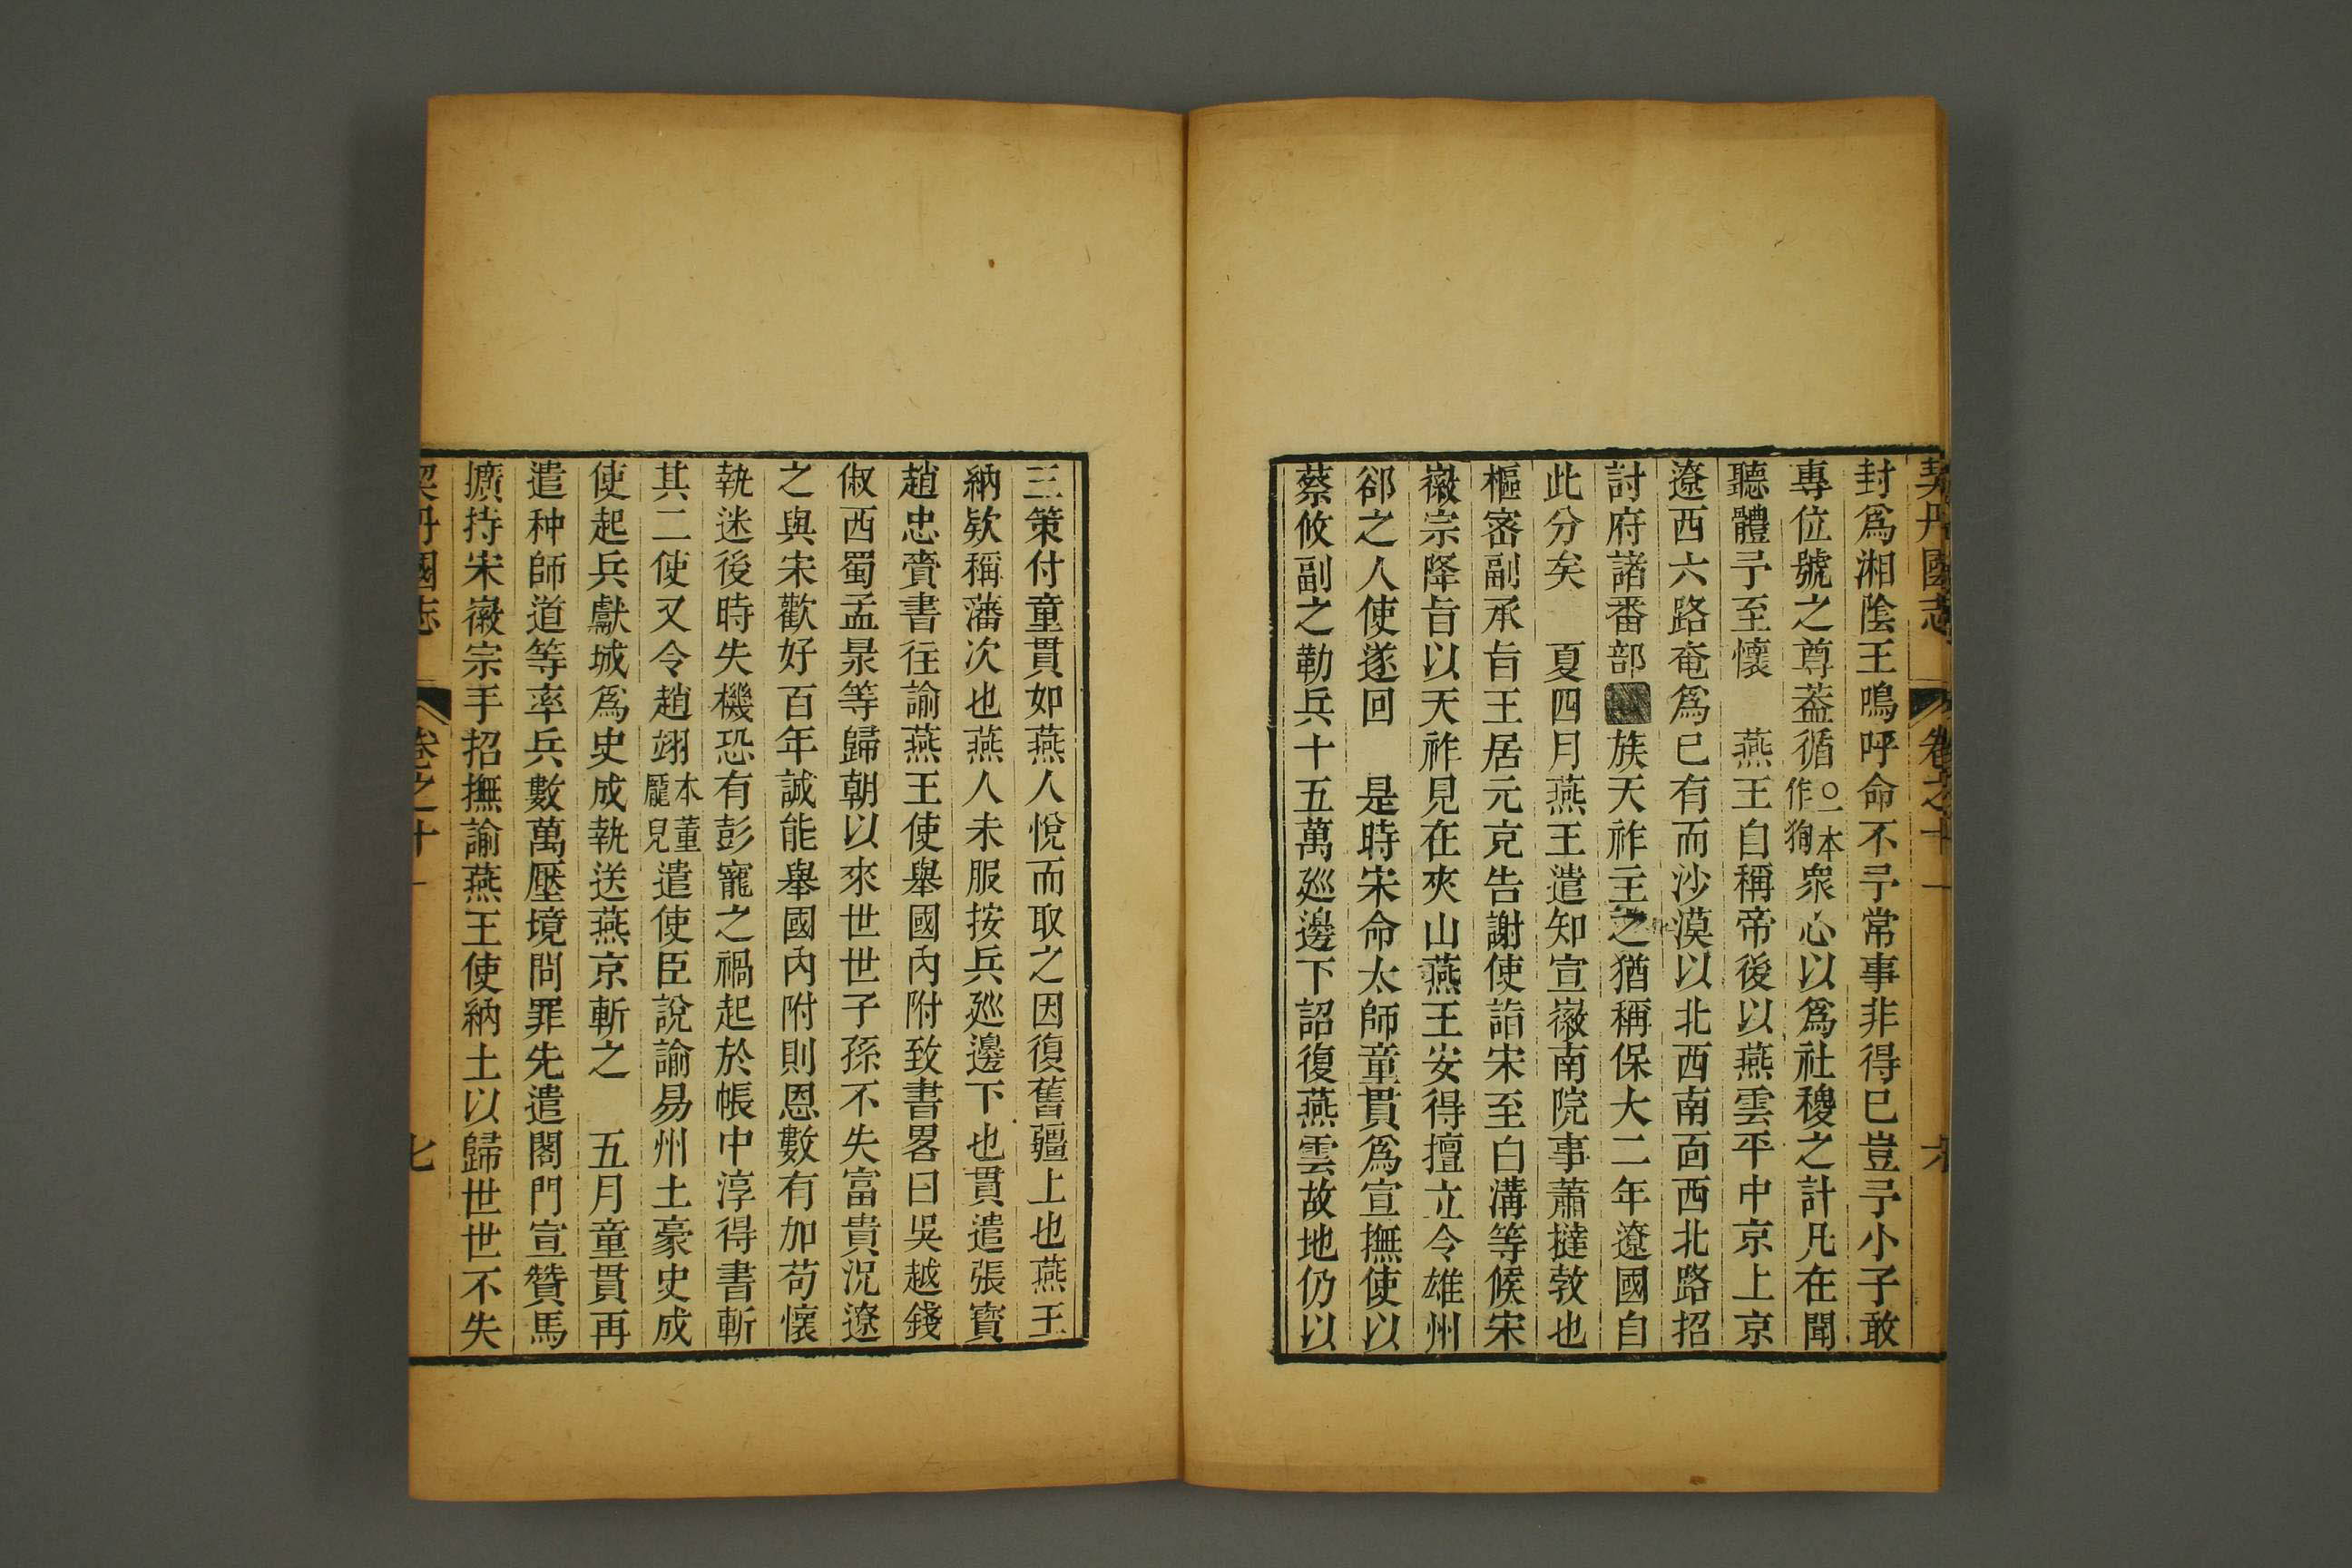 契丹國志 卷之十一 六
封爲湘陰王嗚呼命不予常事非得已豈予小子敢
專位號之尊葢循○一本作狥衆心以爲社稷之計凡在聞
聽體予至懷 燕王自稱帝後以燕雲平中京上京
遼西六路奄爲已有而沙漠以北西南面西北路招
討府諸番部族天祚主之猶稱保大二年遼國自
此分矣 夏四月燕王遣知宣徽南院事蕭撻敦也
樞密副承旨王居元克告謝使詣宋至白溝等候宋
徽宗降旨以天祚見在夾山燕王安得擅立令雄州
郤之人使遂回 是時宋命太師童貫爲宣撫使以
蔡攸副之勒兵十五萬廵邊下詔復燕雲故地仍以
三策付童貫如燕人悅而取之因復舊疆上也燕王
納欵稱藩次也燕人未服按兵廵邊下也貫遣張寳
趙忠賫書往諭燕王使舉國內附致書畧曰吳越錢
俶西蜀孟㫤等歸朝以來世世子孫不失富貴況遼
之與宋歡好百年誠能舉國內附則恩數有加苟懷
執迷後時失機恐有彭寵之禍起於帳中淳得書斬
其二使又令趙翊本董龎兒遣使臣說諭易州土豪史成
使起兵獻城爲史成執送燕京斬之 五月童貫再
遣种師道等率兵數萬壓境問罪先遣閤門宣贊馬
擴持宋徽宗手招撫諭燕王使納土以歸世世不失
契丹國志 卷之十一 七